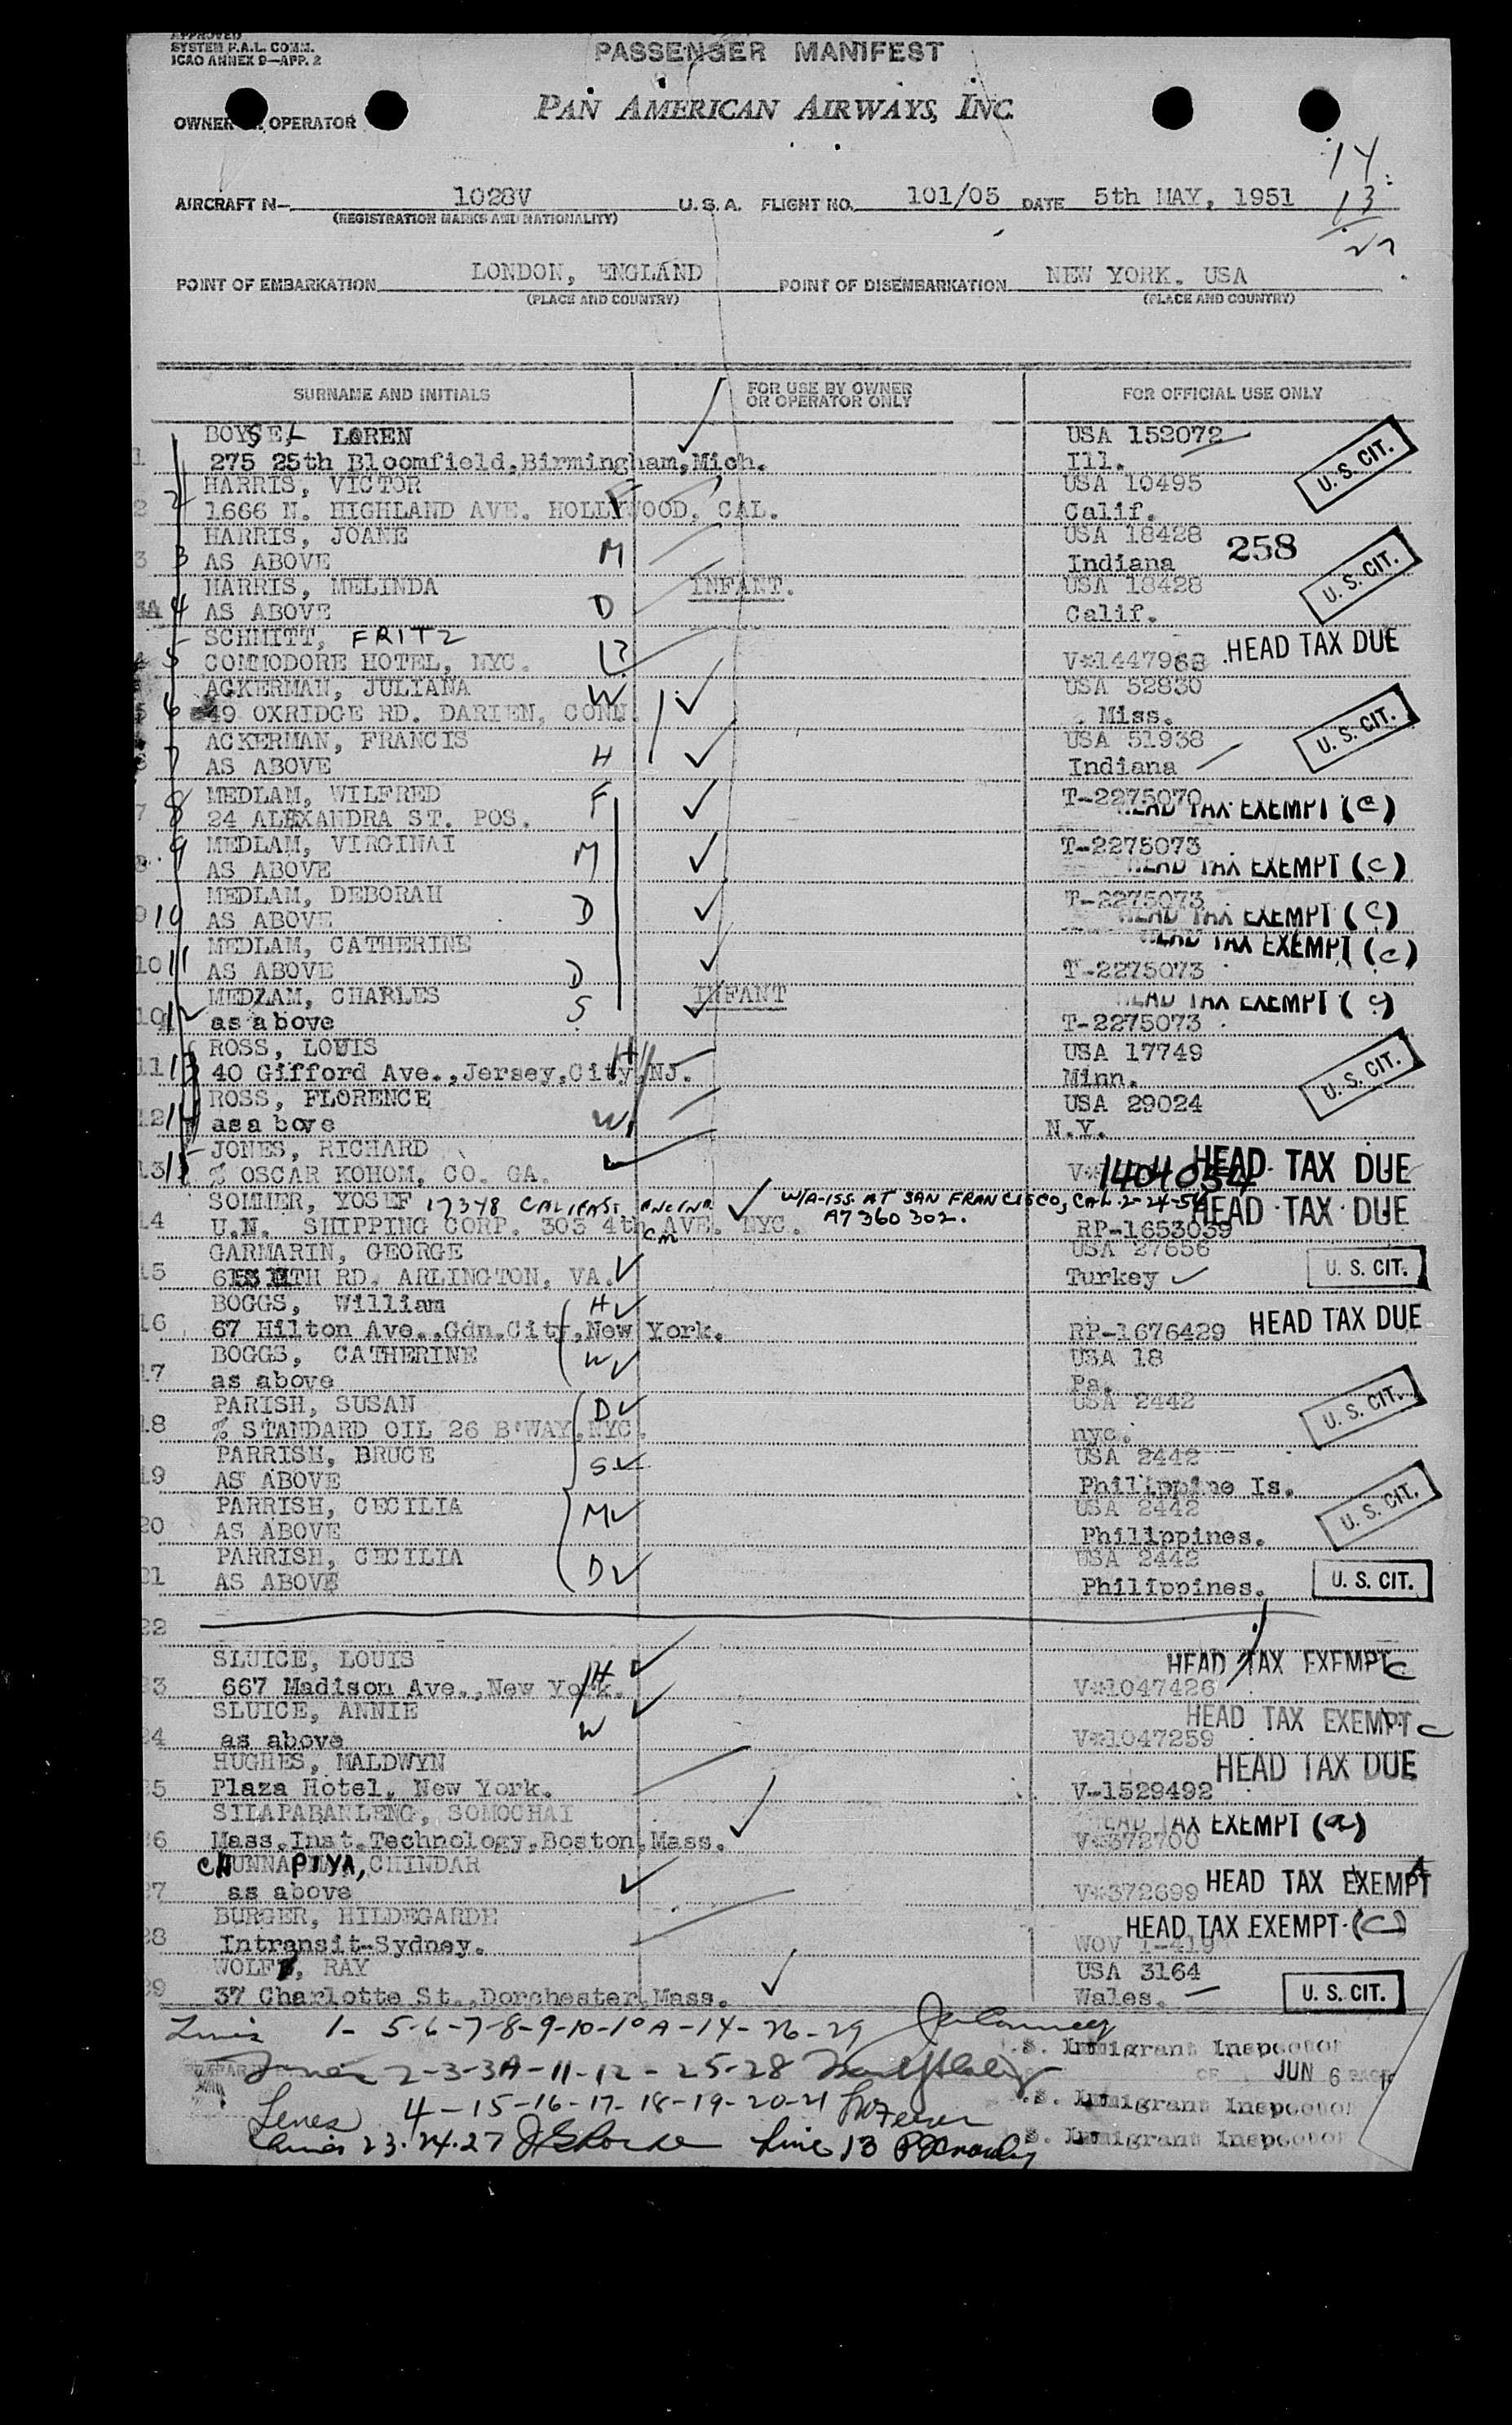 APPROVED
SYSTEM F.A.L. COMM.
ICAO ANNEX 9—APP. 2
PASSENGER MANIFEST
OWNER OPERATOR
PAN AMERICAN AIRWAYS, INC.
14
13
27
AIRCRAFT N— 1028V U.S.A. FLIGHT NO. 101/05 DATE 5th MAY, 1951
(REGISTRATION MARKS AND NATIONALITY)
POINT OF EMBARKATION LONDON, ENGLAND POINT OF DISEMBARKATION NEW YORK. USA
(PLACE AND COUNTRY) (PLACE AND COUNTRY)
SURNAME AND INITIALS FOR USE BY OWNER OR OPERATOR ONLY FOR OFFICIAL USE ONLY
LOREN USA 152072
1 275 25th Bloomfield,Birmingham,Mich. Ill. U. S. CIT.
HARRIS, VICTOR USA 10495
2 2 1666 N. HIGHLAND AVE. HOLLYWOOD, CAL. F Calif.
HARRIS, JOANE USA 18428 258
3 3 AS ABOVE M Indiana U. S. CIT.
HARRIS, MELINDA INFANT. USA 18428
3A 4 AS ABOVE D Calif.
SCHMITT, FRITZ HEAD TAX DUE
5 COMMODORE HOTEL, NYC.
ACKERMAN, JULIANA W USA 52830
5 6 49 OXRIDGE RD. DARIEN, CONN. Miss. U. S. CIT.
ACKERMAN, FRANCIS USA 51938
6 7 AS ABOVE H Indiana
MEDLAM, WILFRED F T-2275070
7 8 24 ALEXANDRA ST. POS. HEAD TAX EXEMPT (C)
9 MEDLAM, VIRGINAI M T-2275073
8 AS ABOVE HEAD TAX EXEMPT (C)
MEDLAM, DEBORAH D T-2275073
9 10 AS ABOVE HEAD TAX EXEMPT (C)
MEDLAM, CATHERINE HEAD TAX EXEMPT (C)
10 11 AS ABOVE D T-2275073
MEDLAM, CHARLES S INFANT HEAD TAX EXEMPT (C)
12 as above T-2275073
ROSS, LOUIS H USA 17749
11 13 40 Gifford Ave.,Jersey,City,NJ. Minn. U. S. CIT.
ROSS, FLORENCE USA 29024
12 14 asa bove W N.Y.
JONES, RICHARD
13 15 % OSCAR KOHOM, CO. GA. 1404054 HEAD TAX DUE
SOMMER, YOSEF 17348 W/A-ISS AT SAN FRANCISCO, CAL. 2-24-54 HEAD TAX DUE
14 U.N. SHIPPING CORP. 303 4th AVE. NYC. A7 360 302. RP-1653039
GARMARIN, GEORGE USA 27656
15 TH RD. ARLINGTON, VA. Turkey U. S. CIT.
BOGGS, William H
16 67 Hilton Ave.,Gdn.City,New York. RP-1676429 HEAD TAX DUE
BOGGS, CATHERINE W USA 18
17 as above Pa.
PARISH, SUSAN D USA 2442
18 % STANDARD OIL 26 B'WAY.NYC. nyc. U. S. CIT.
PARRISH, BRUCE S USA 2442
19 AS ABOVE Philippine Is.
PARRISH, CECILIA M USA 2442
20 AS ABOVE Philippines. U. S. CIT.
PARRISH, CECILIA D USA 2442
21 AS ABOVE Philippines. U. S. CIT.
22
SLUICE, LOUIS H HEAD TAX EXEMPT C
23 667 Madison Ave.,New York. V*1047426
SLUICE, ANNIE W HEAD TAX EXEMPT C
24 as above V*1047259
HUGHES, MALDWYN HEAD TAX DUE
25 Plaza Hotel, New York. V-1529492
SILAPABANLENG, SOMOCHAI HEAD TAX EXEMPT (a)
26 Mass.Inst.Technology,Boston,Mass. V*372700
CHINDAR
27 as above V*372699 HEAD TAX EXEMPT A
BURGER, HILDEGARDE HEAD TAX EXEMPT (C)
28 Intransit-Sydney. WOV 1-419
RAY USA 3164
29 37 Charlotte St.,Dorchester,Mass. Wales. U. S. CIT.
1- 5-6-7-8-9-10-10A-14-26-29
Immigrant Inspector
2-3-3A-11-12-25-28 JUN 6
Lines 4-15-16-17-18-19-20-21 Immigrant Inspector
23.24.27 Line 13 Immigrant Inspector